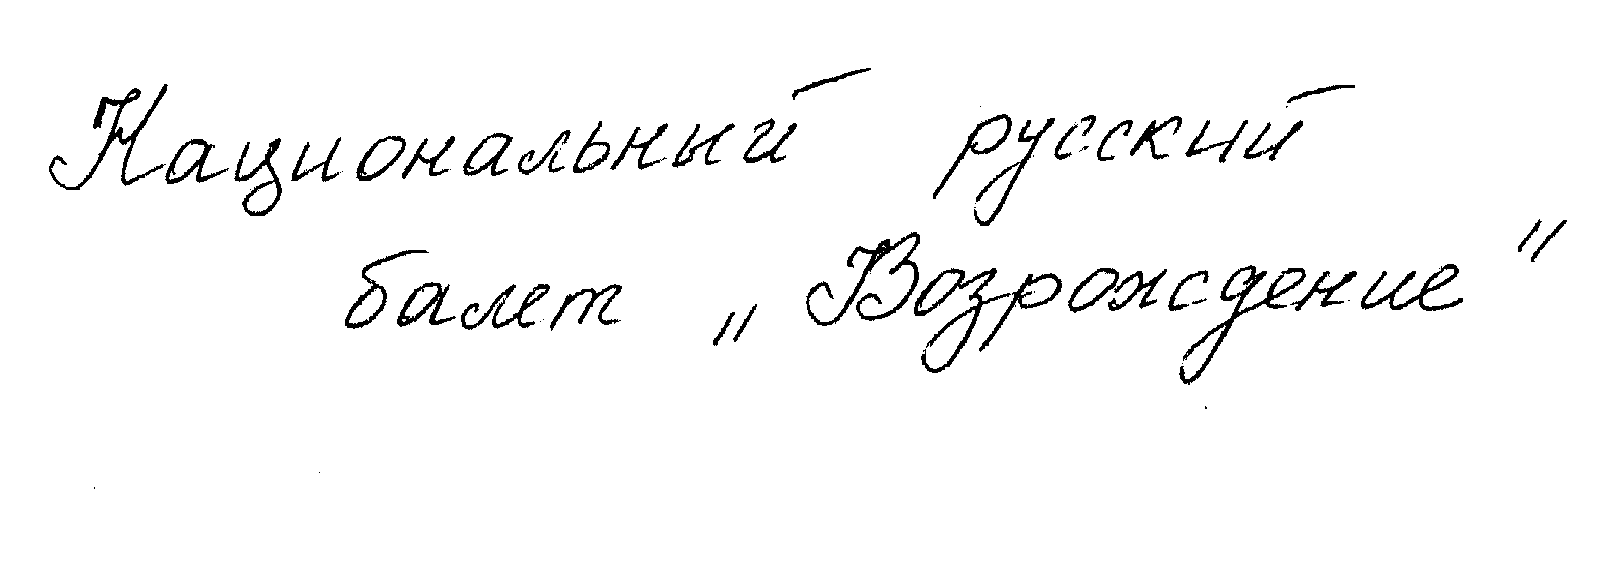 Национальный русский
балет „Возрождение"